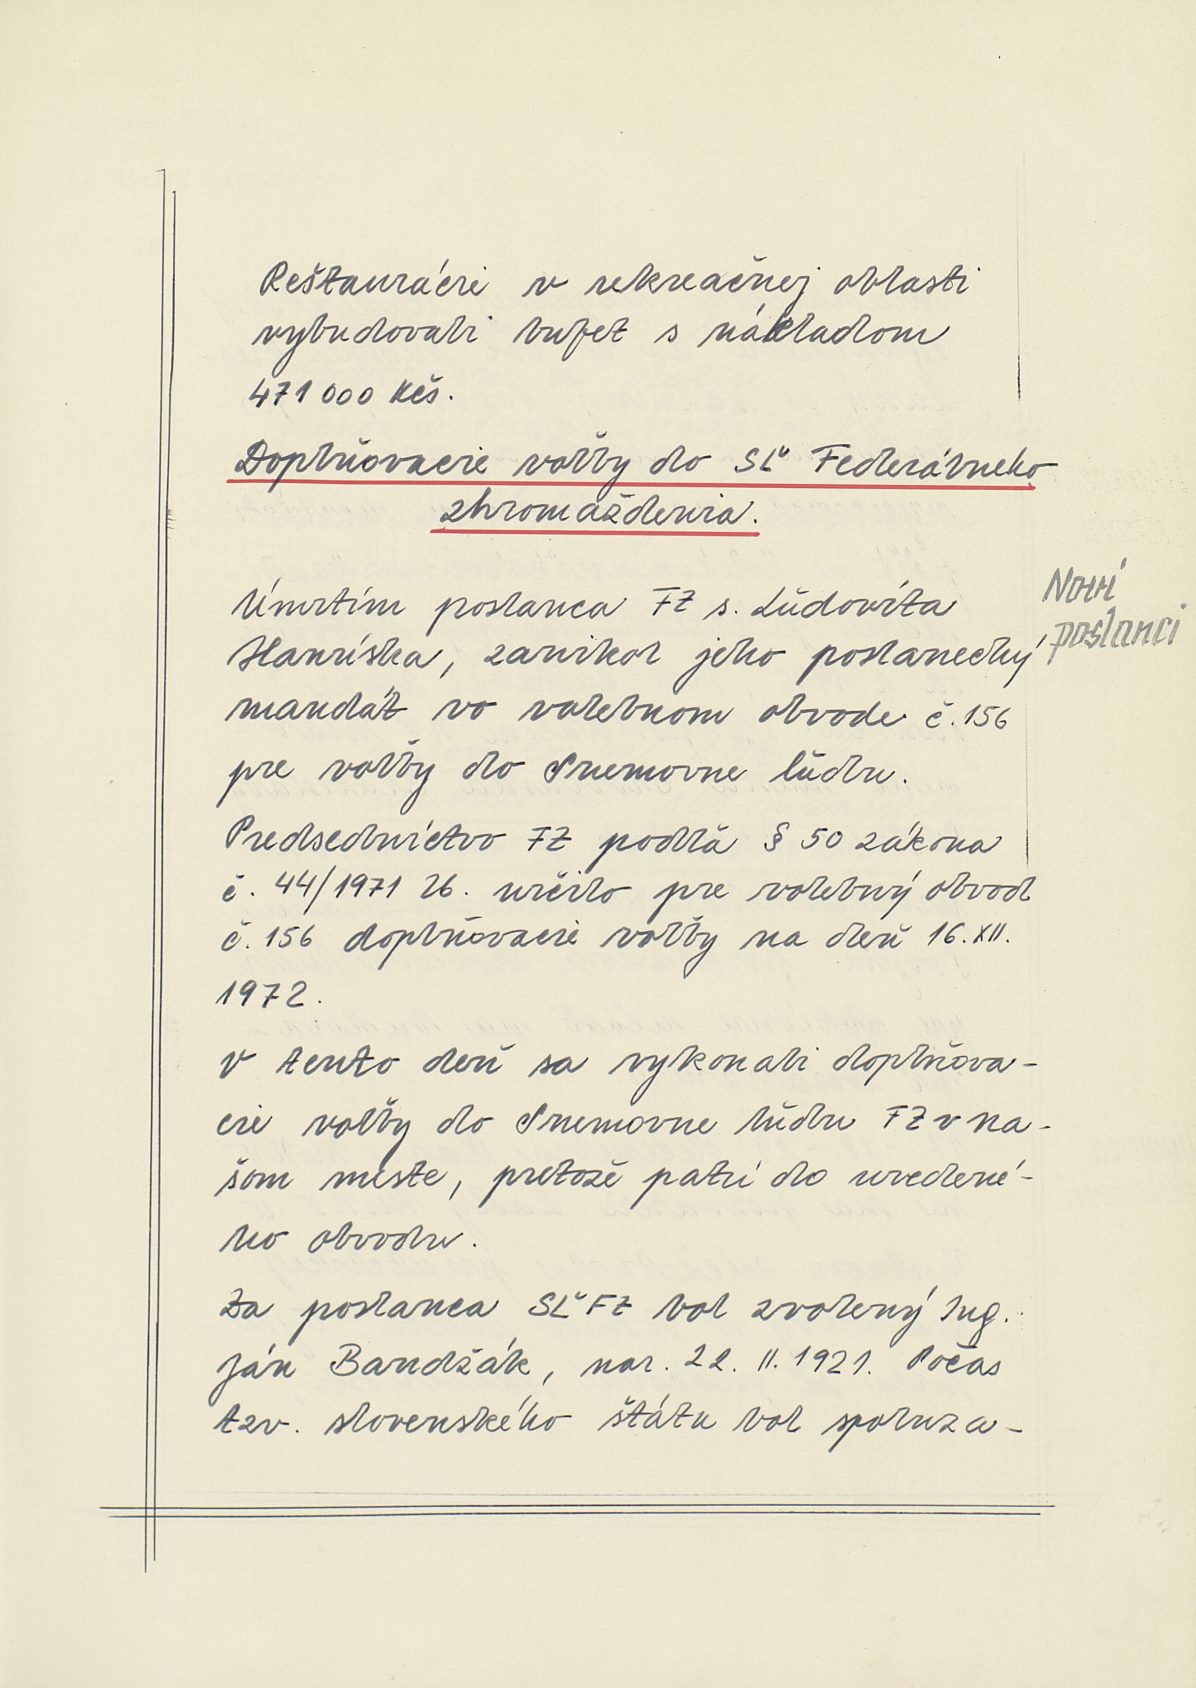 Reštaurácii v rekreačnej oblasti
vybudovali bufet s nákladom
471 000 Kčs.
Doplňovacie voľby do SĽ Federálneho
zhromaždenia.
Úmrtím poslanca FZ s. Ľudovíta
Hanúska, zanikol jeho poslanecký
mandát vo volebnom obvode č. 156
pre voľby do Snemovne ľudu.
Novi
poslanci
Predsedníctvo FZ podľa § 50 zákona
č. 44/1971 Zb. určilo pre volebný obvod
č. 156 doplňovacie voľby na deň 16. XII.
1972.
V tento deň sa vykonali doplňova-
cie voľby do Snemovne ľudu FZ v na-
šom meste, pretože patrí do uvedené-
ho obvodu.
Za poslanca SĽ FZ bol zvolený Ing.
Ján Bandžák, nar. 22. II. 1921. Počas
tzv. slovenského štátu bol spoluza-